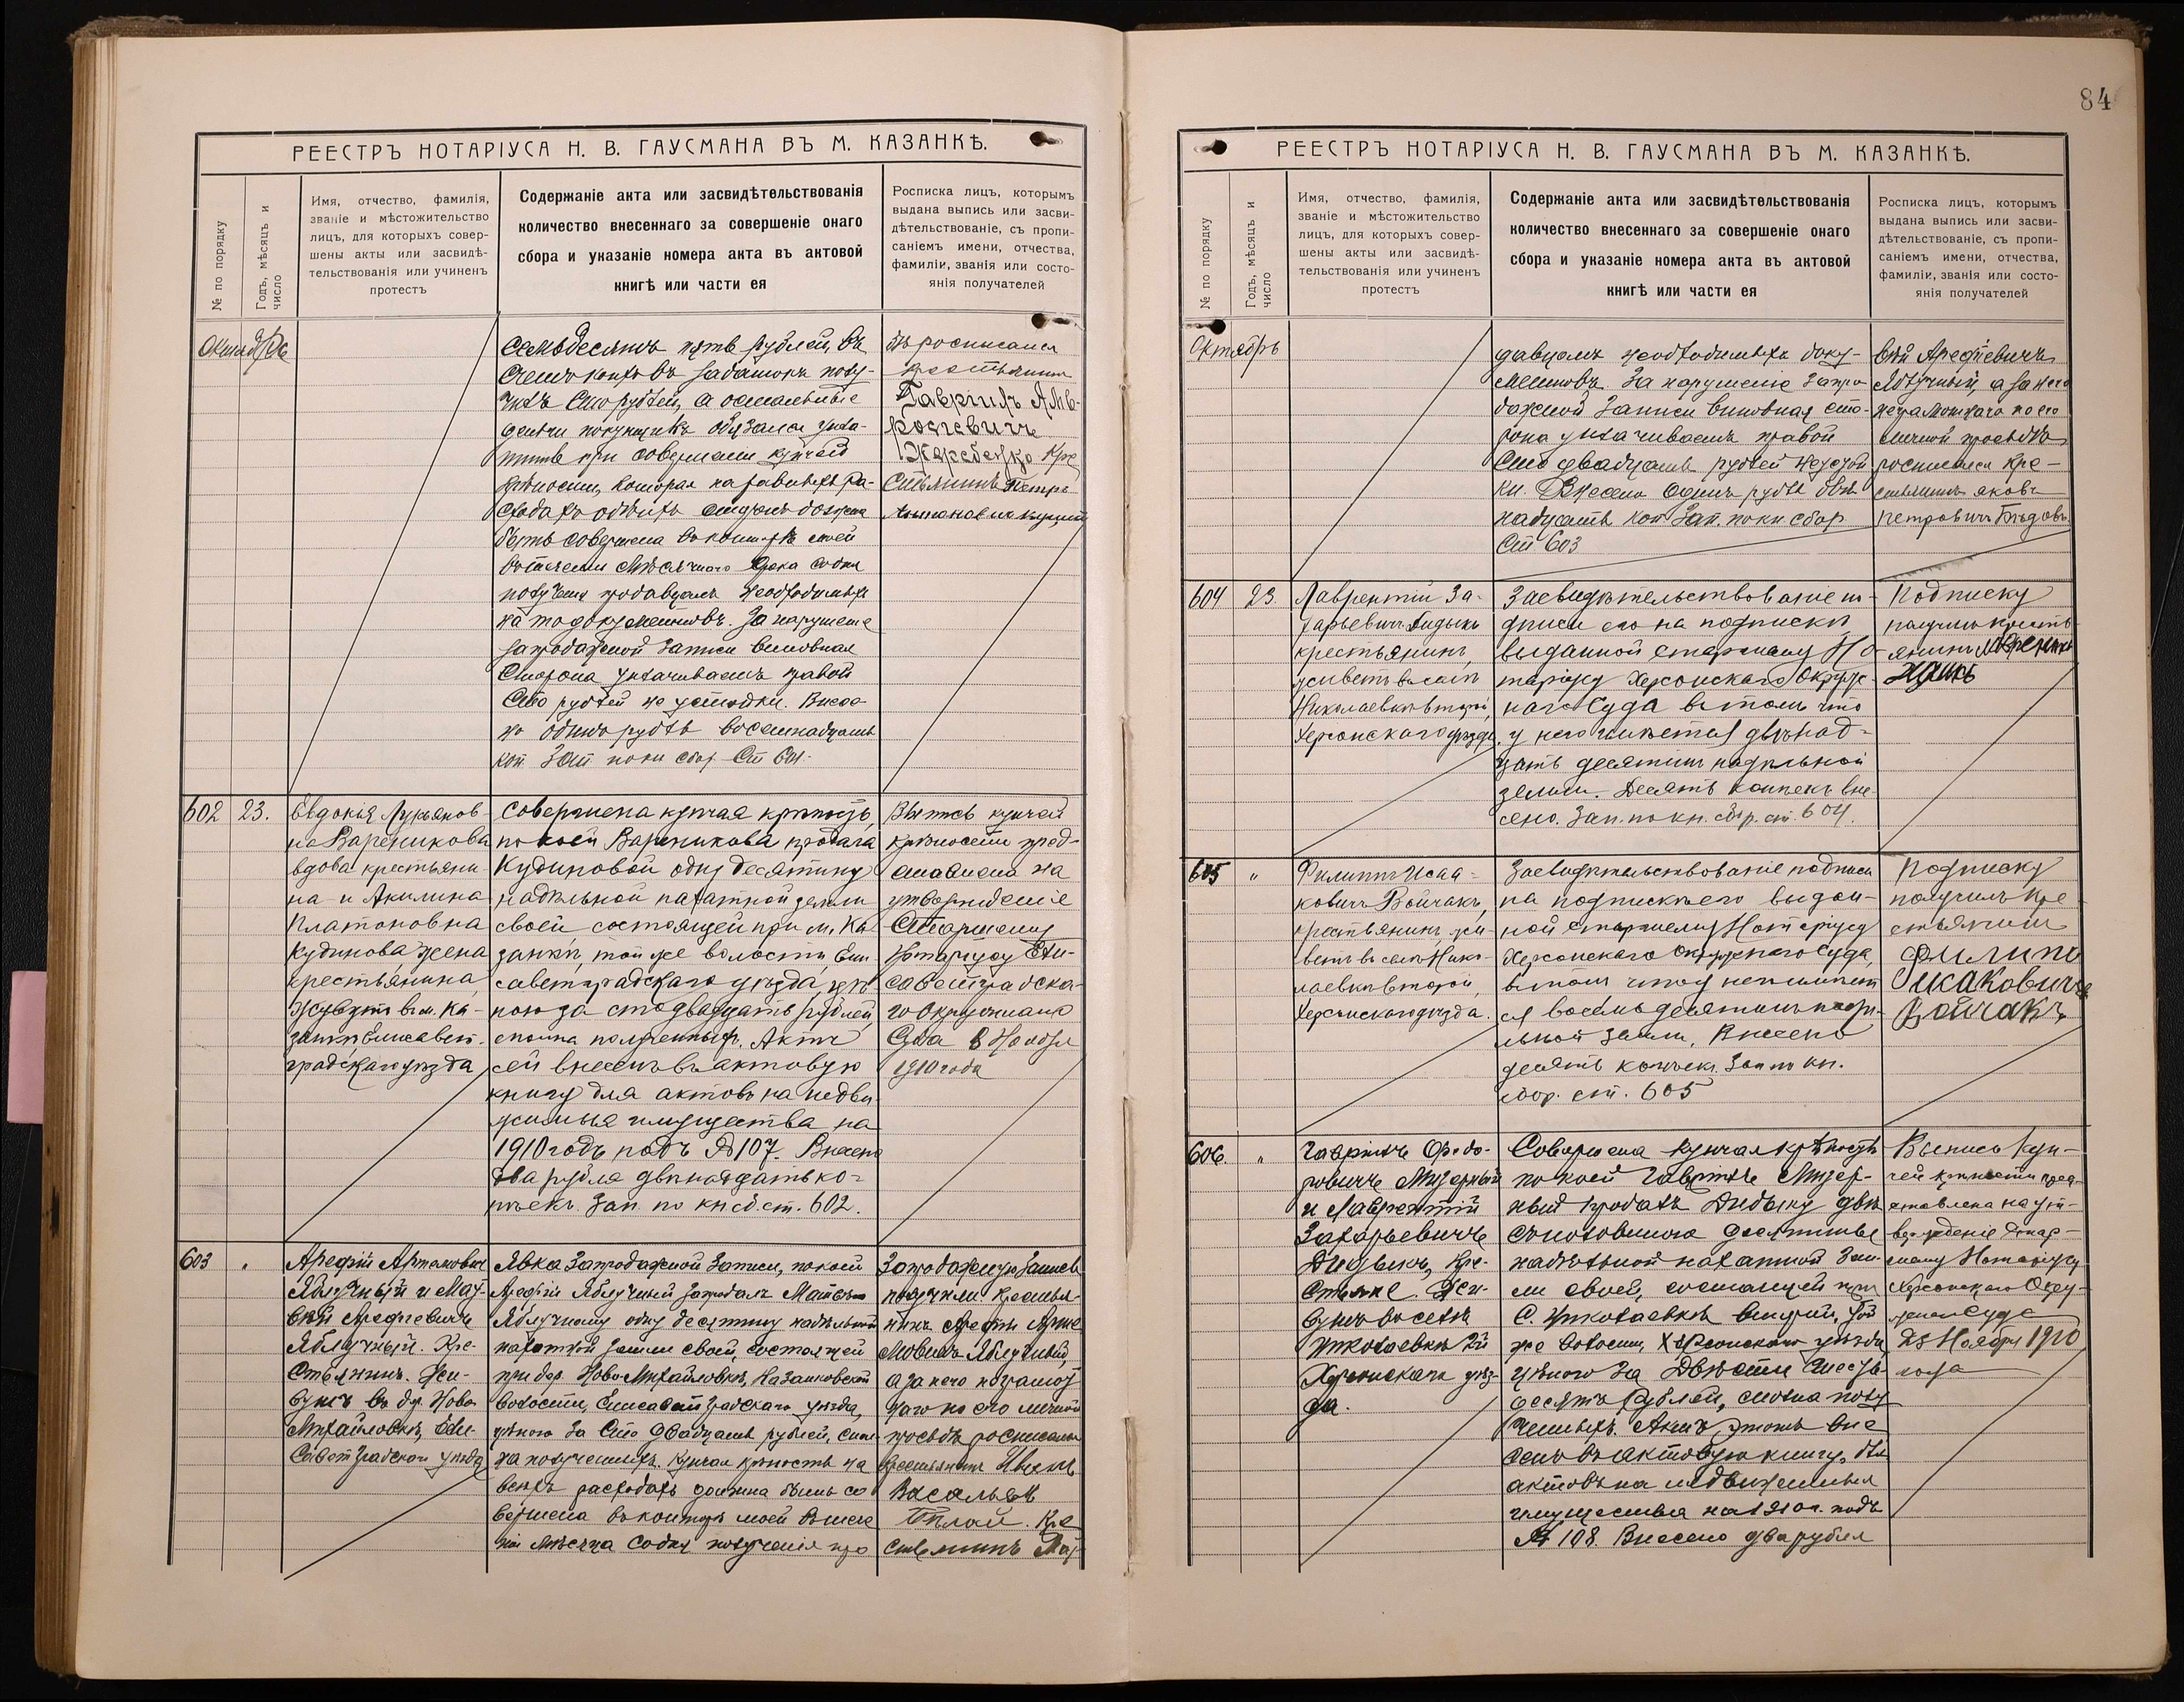 РЕЕСТРЪ НОТАРІУСА Н. В. ГАУСМАНА ВЪ М. КАЗАНКѢ.
№ по порядку
Годъ, мѣсяцъ и
число
Имя, отчество, фамилія,
званіе и мѣстожительство
лицъ, для которыхъ совер-
шены акты или засвидѣ-
тельствованія или учиненъ
протестъ
Содержаніе акта или засвидѣтельствованія
количество внесеннаго за совершеніе онаго
сбора и указаніе номера акта въ актовой
книгѣ или части ея
Росписка лицъ, которымъ
выдана выпись или засви-
дѣтельствованіе, съ пропи-
саніемъ имени, отчества,
фамиліи, званія или состо-
янія получателей
Октябрь
Семьдесятъ пять рублей, въ
счетъ коихъ въ задатокъ полу-
чилъ Сто рублей, а остальные
деньги покупщикъ обязался упла-
тить при совершеніи купчей
крѣпости, которая на равныхъ ра-
сходахъ обѣихъ сторонъ должна
быть совершена въ конторѣ моей
въ теченіи мѣсячнаго срока со дня
полученія продавцомъ необходимыхъ
на то документовъ. За нарушеніе
запродажной записи виновная
Сторона уплачиваетъ правой
Сто рублей неустойки. Внесе-
но одинъ рубль восемнадцать
коп. Зап. по кн. сбор. Ст 601.
росписался
крестьянинъ
Гавріилъ Амв-
росіевичъ
Жеребенко Кре
стьянинъ Петръ
602
23.
Евдокія Лукьянов-
на Вареникова
вдова крестьяни-
на и Акилина
Платоновна
Кудинова жена
крестьянина,
живутъ въ м. Ка-
занкѣ Елисавет-
градскаго уѣзда
Совершена купчая крѣпость,
по коей Вареникова продала
Кудиновой одну десятину
надѣльной пахатной земли
своей состоящей при м. Ка
занкѣ, той же волости, Ели
саветградскаго уѣзда, цѣ-
ною за сто двадцать рублей,
сполна полученныхъ. Актъ
сей внесенъ въ актовую
книгу для актовъ на недви-
жимыя имущества на
1910 годъ подъ № 107. Внесено
два рубля двѣнадцать ко-
пѣекъ. Зап. по кн. сб. ст. 602.
Выпись купчей
крѣпости пред-
ставлена на
утвержденіе
Старшему
Нотаріусу Ели-
саветградска-
го Окружнаго
Суда 8 Ноября
1910 года
603
"
Арефій Артамоновичъ
Яблучный и Мат-
вѣй Арефіевичъ
Яблучный. Кре-
стьянинъ. Жи-
вутъ въ др. Ново
Михайловкѣ, Ели-
саветградскаго уѣзда
Явка Запродажной Записи, по коей
Арефій Яблучный запродалъ Матвѣю
Яблучному одну десятину надѣльной
пахатной земли своей, состоящей
при дер. Ново Михайловкѣ, Казанковской
волости, Елисаветградскаго уѣзда,
цѣною за Сто двадцать рублей, спол
на полученныхъ. Купчая крѣпость на
всѣхъ расходахъ должна быть со
вершена въ конторѣ моей въ тече
ніи мѣсяца со дня полученія про
Запродажную Запись
получили. Крестья-
нинъ Арефій Арта
моновичъ Яблучный,
а за него неграмот
наго по его личной
просьбѣ росписался
крестьянинъ
Васильевъ
Кре
стьянинъ Мат
84
РЕЕСТРЪ НОТАРІУСА Н. В. ГАУСМАНА ВЪ М. КАЗАНКѢ.
№ по порядку
Годъ, мѣсяцъ и
число
Имя, отчество, фамилія,
званіе и мѣстожительство
лицъ, для которыхъ совер-
шены акты или засвидѣ-
тельствованія или учиненъ
протестъ
Содержаніе акта или засвидѣтельствованія
количество внесеннаго за совершеніе онаго
сбора и указаніе номера акта въ актовой
книгѣ или части ея
Росписка лицъ, которымъ
выдана выпись или засви-
дѣтельствованіе, съ пропи-
саніемъ имени, отчества,
фамиліи, званія или состо-
янія получателей
Октябрь
давцомъ необходимыхъ доку-
ментовъ. За нарушеніе запро
дажной Записи виновная сто-
рона уплачиваетъ правой
Сто двадцать рублей неустой
ки. Внесено одинъ рубль двѣ
надцать коп. Зап. по кн. сбор
Ст 603
вѣй Арефіевичъ
Яблучный, а за него
неграмотнаго по его
личной просьбѣ
росписался кре-
стьянинъ Яковъ
Петровичъ Бѣдовъ.
604
23.
Лаврентій За-
харьевичъ Дидыкъ
крестьянинъ,
живетъ въ селѣ
Николаевкѣ второй,
Херсонскаго уѣзда.
Засвидѣтельствованіе по-
дписи его на подпискѣ,
выданной старшему Но-
таріусу Херсонскаго Окруж-
наго Суда въ томъ что
у него имѣется двѣнад-
цать десятинъ надѣльной
земли. Десять копѣекъ вне
сено. Зап. по кн. сбор. ст. 604.
Подписку
получилъ кресть-
янинъ Лаврентій
Дидыкъ
605
"
Филиппъ Исаа-
ковичъ Войчакъ,
крестьянинъ, жи-
ветъ въ селѣ Нико-
лаевкѣ второй,
Херсонскаго уѣзда.
Засвидѣтельствованіе подписи
на подпискѣ его выдан-
ной старшему Нотаріусу
Херсонскаго Окружнаго Суда,
въ томъ что у него имѣет
ся восемь десятинъ надѣ-
льной земли, Внесено
десять копѣекъ. Зап по кн.
сбор. ст. 605
Подписку
получилъ кре
стьянинъ
Филипъ
Исаковичъ
Войчакъ
606.
"
Гавріилъ Федо-
ровичъ Мизерный
и Лаврентій
Захарьевичъ
Дидыкъ, Кре-
стьяне. Жи-
вутъ въ селѣ
Николаевкѣ 2й
Херсонскаго уѣз-
да.
Совершена купчая крѣпость
по коей Гавріилъ Мизер-
ный продалъ Дидыку двѣ
съ половиною десятины
надѣльной пахатной зем-
ли своей, состоящей при
С. Николаевкѣ второй, той
же волости, Херсонскаго уѣзда
цѣною за Двѣсти шесть-
десятъ рублей, сполна полу
ченныхъ. Актъ этотъ вне
сенъ въ актовую книгу, для
актовъ на недвижимыя
имущества на 1910 г. подъ
№ 108. Внесено два рубля
Выпись куп-
чей крѣпости пред-
ставлена на ут-
вержденіе Стар-
шему Нотаріусу
Херсонскаго Окру-
жнаго Суда
23 Ноября 1910
года